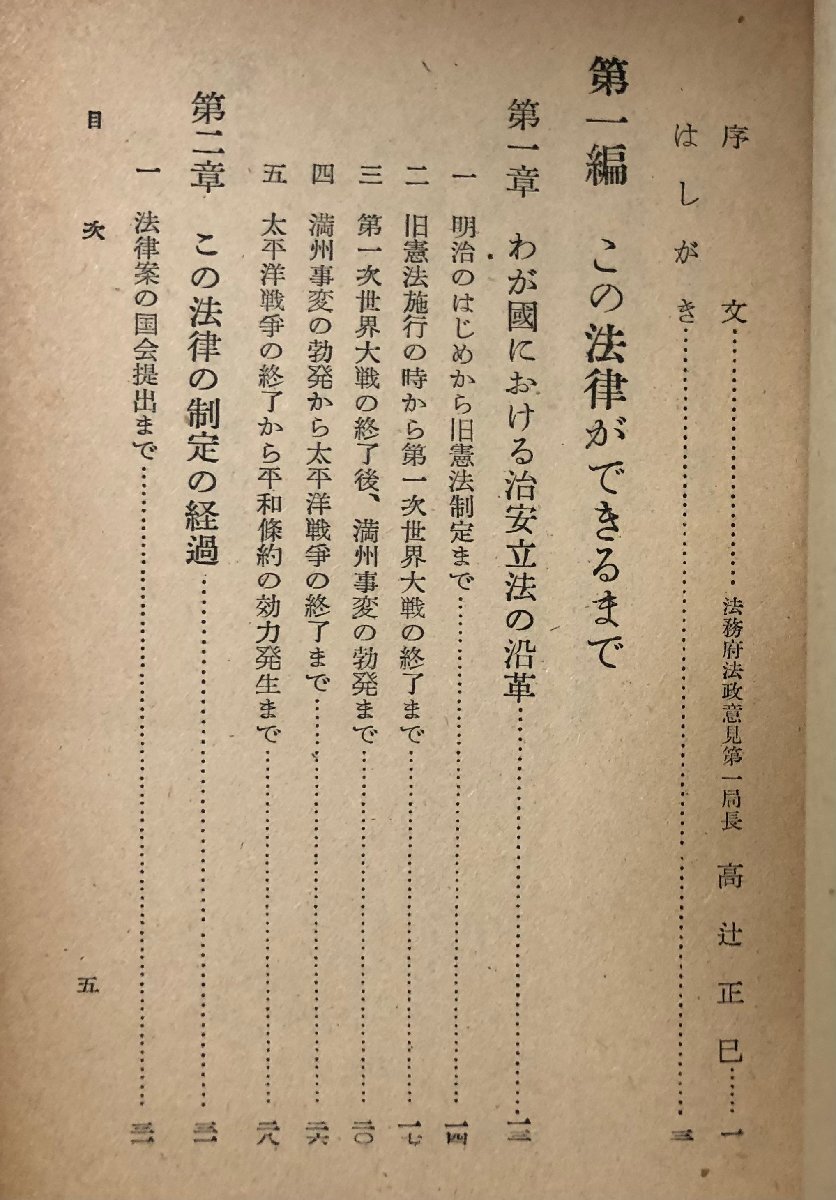 序文……………………法務府法政意見第一局長 高辻正巳……一
はしがき……………………三
第一編 この法律ができるまで
第一章 わが國における治安立法の沿革……………………一三
一 明治のはじめから旧憲法制定まで……………………一四
二 旧憲法施行の時から第一次世界大戦の終了まで……………………一七
三 第一次世界大戦の終了後、満州事変の勃発まで……………………二〇
四 満州事変の勃発から太平洋戦爭の終了まで……………………二六
五 太平洋戦爭の終了から平和條約の効力発生まで……………………二八
第二章 この法律の制定の経過……………………三一
一 法律案の国会提出まで……………………三一
目次 五